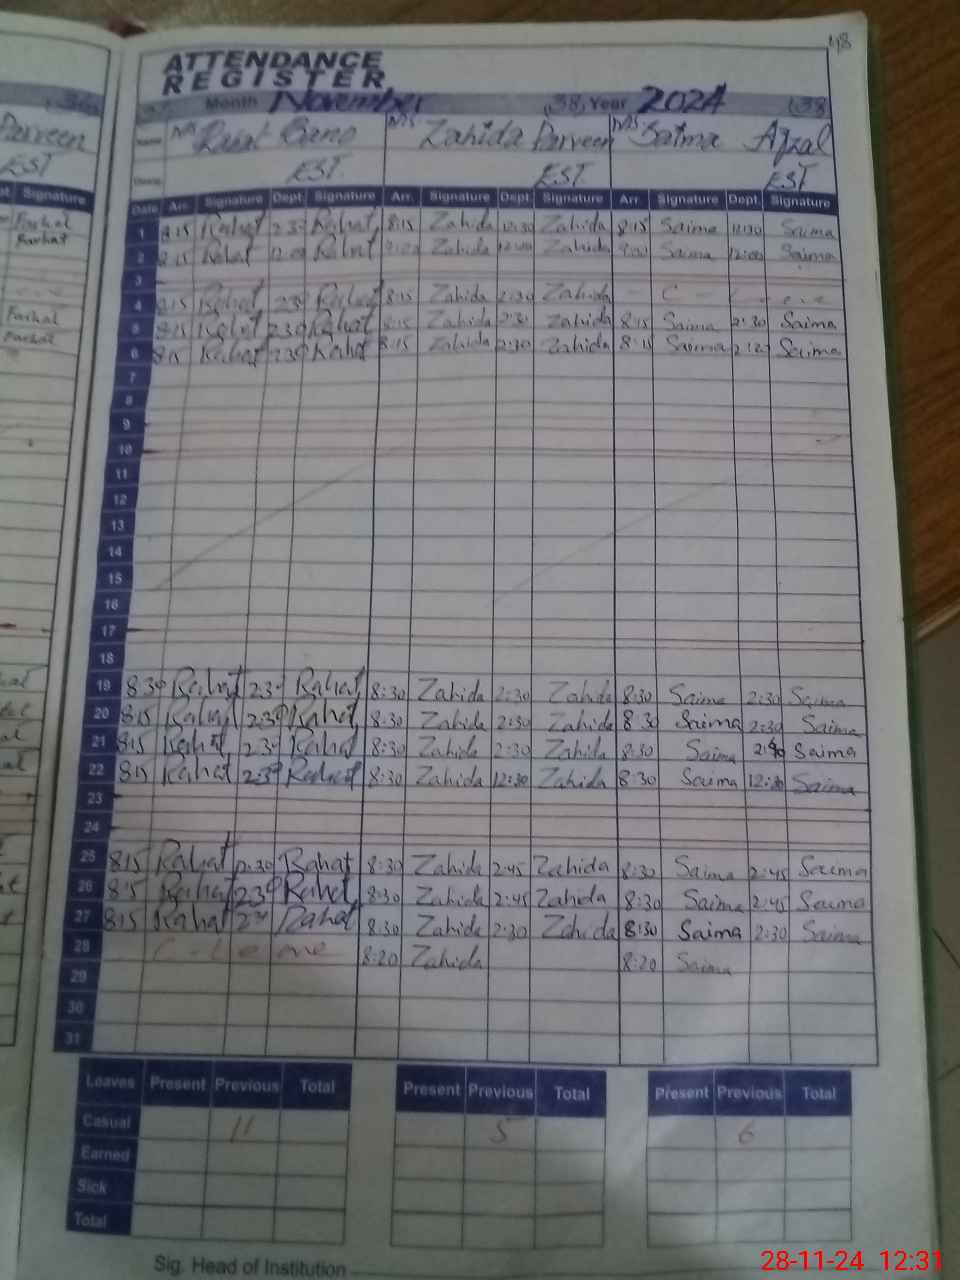 48
ATTENDANCE
REGISTER
Month November 38 Year 2024 38
Parveen Name Rahat Bano Zahida Parveen Saima Afzal
EST EST. EST EST
Signature Date Arr. Signature Dept. Signature Arr. Signature Dept. Signature Arr. Signature Dept. Signature
Farhat 1 8:15 Rahat 2:30 Rahat 8:15 Zahida 12:30 Zahida 8:15 Saima 12:30 Saima
Farhat 2 8:15 Rahat Rahat Zahida 12:00 Zahida Saima 12:00 Saima
3
Farhat 4 8:15 Rahat 2:30 Rahat 8:15 Zahida 2:30 Zahida C - Leave
Farhat 5 8:15 Rahat 2:30 Rahat 8:15 Zahida 2:30 Zahida 8:15 Saima 2:30 Saima
6 8:15 Rahat 2:30 Rahat 8:15 Zahida 2:30 Zahida 8:15 Saima Saima
7
8
9
10
11
12
13
14
15
16
17
18
19 8:30 Rahat 2:30 Rahat 8:30 Zahida 2:30 Zahida 8:30 Saima 2:30 Saima
20 8:15 Rahat 2:30 Rahat 8:30 Zahida 2:30 Zahida 8:30 Saima 2:30 Saima
21 8:15 Rahat 2:30 Rahat 8:30 Zahida 2:30 Zahida 8:30 Saima Saima
22 8:15 Rahat 2:30 Rahat 8:30 Zahida 12:30 Zahida 8:30 Saima 12:30 Saima
23
24
25 8:15 Rahat 2:30 Rahat 8:30 Zahida 2:45 Zahida 8:30 Saima 2:45 Saima
26 8:15 Rahat 2:30 Rahat 8:30 Zahida 2:45 Zahida 8:30 Saima 2:45 Saima
27 8:15 Rahat Rahat 8:30 Zahida 2:30 Zahida 8:30 Saima 2:30 Saima
28 C - Leave 8:20 Zahida 8:20 Saima
29
30
31
Leaves Present Previous Total Present Previous Total Present Previous Total
Casual 11 5 6
Earned
Sick
Total
Sig. Head of Institution
28-11-24 12:31